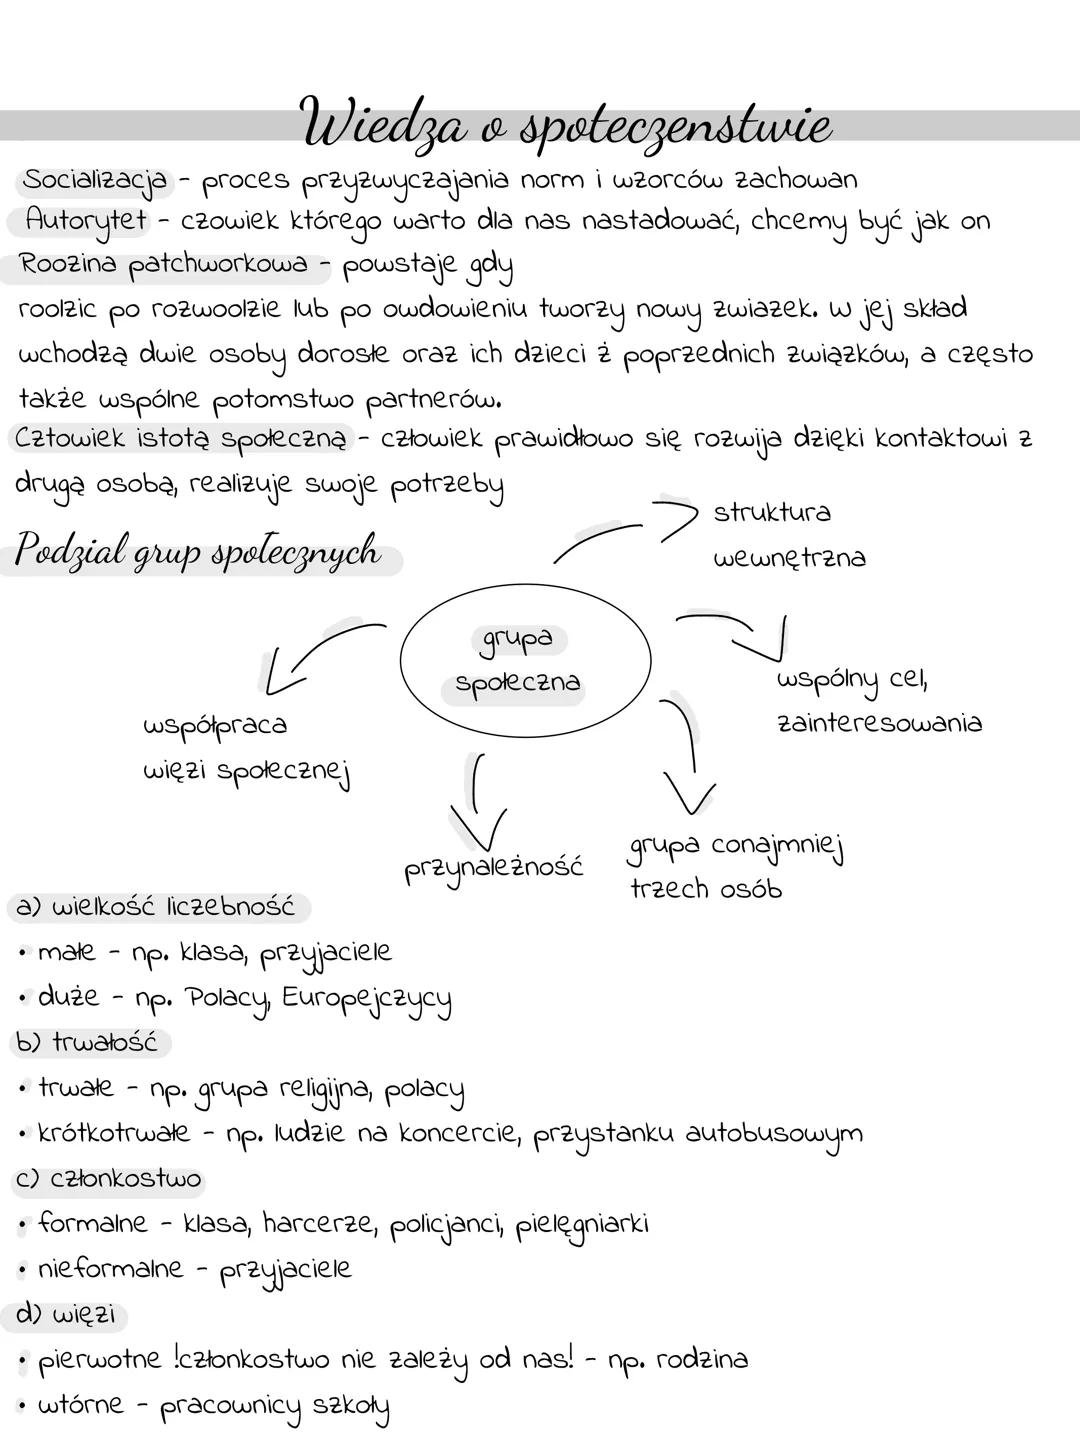 Wiedza o spoteczenstwie
Socializacja - proces przyzwyczajania norm i wzorców zachowan
Autorytet - czowiek którego warto dla nas nastadować, chcemy być jak on
Roozina patchworkowa - powstaje gdy
roolzic po rozwoolzie lub po owdowieniu tworzy nowy zwiazek. W jej skład
wchodzą dwie osoby dorosłe oraz ich dzieci ż poprzednich związków, a często
także wspólne potomstwo partnerów.
Cztowiek istotą społeczną - człowiek prawidłowo się rozwija dzięki kontaktowi z
drugą osobą, realizuje swoje potrzeby
struktura
wewnętrzna
Podzial grup społecznych
grupa
społeczna
wspólny cel,
zainteresowania
współpraca
więzi społecznej
przynależność
grupa conajmniej
trzech osób
a) wielkość liczebność
• małe - np. klasa, przyjaciele
• duże - np. Polacy, Europejczycy
b) trwałość
• trwałe - np. grupa religijna, polacy
• krótkotrwałe - np. ludzie na koncercie, przystanku autobusowym
c) członkostwo
• formalne - klasa, harcerze, policjanci, pielęgniarki
• nieformalne - przyjaciele
d) więzi
• pierwotne !członkostwo nie zależy od nas! - np. rodzina
• wtórne - pracownicy szkoły